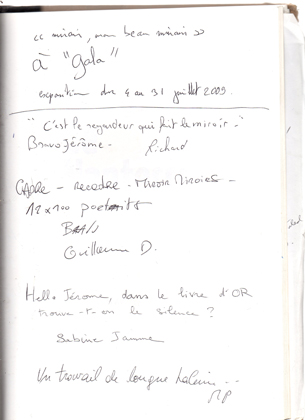 « miroir, mon beau miroir »
à "Gala"
exposition du 4 au 31 juillet 2009.
"C'est le regardeur qui fait le miroir."
Bravo Jérôme. Richard
CADRE - recadre - Miroir Miroirs -
12 x 100 portraits
Guillaume D.
Hello Jérôme, dans le livre d'OR
trouve-t-on le silence ?
Sabine
Un travail de longue haleine...